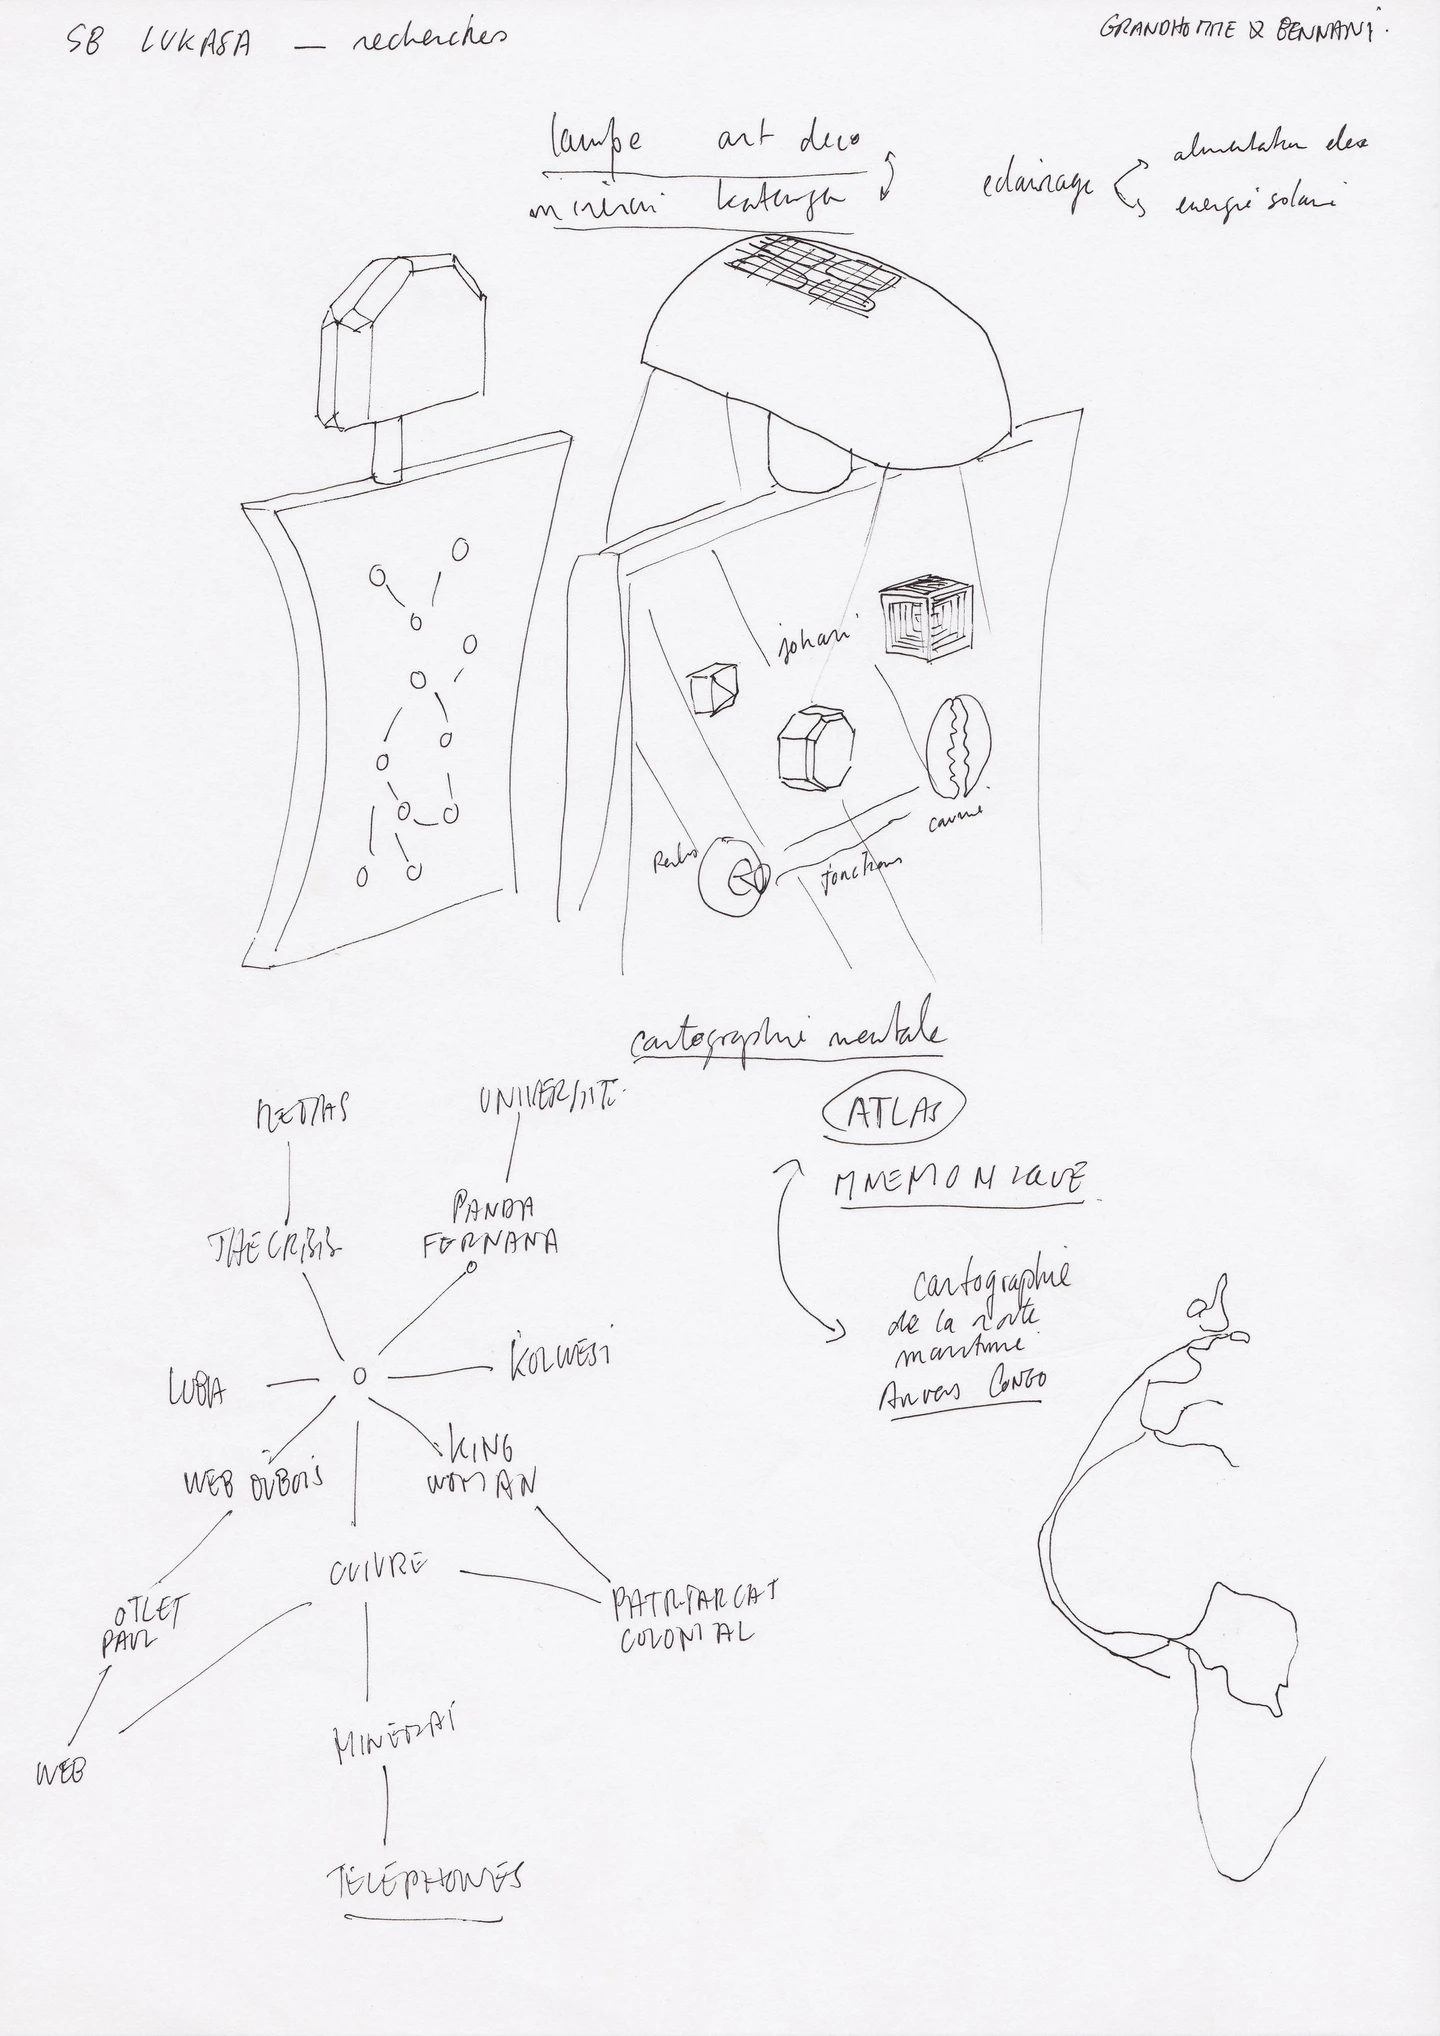 SB LUKASA — recherches
GRANDHOMME & BENNANI.
lampe art deco
minerai katanga
eclairage
alimentation elec
energie solaire
johari
caurie
fonctions
cartographie mentale
MEDIAS
UNIVERSITE
ATLAS
MNEMONIQUE
PANDA
FERNANA
THE CRISIS
cartographie
de la route
maritime
Anvers Congo
KOLWESI
LUBA
KING
WOMAN
WEB DUBOIS
CUIVRE
PATRIARCAT
COLONIAL
OTLET
PAUL
MINERAI
WEB
TELEPHONES